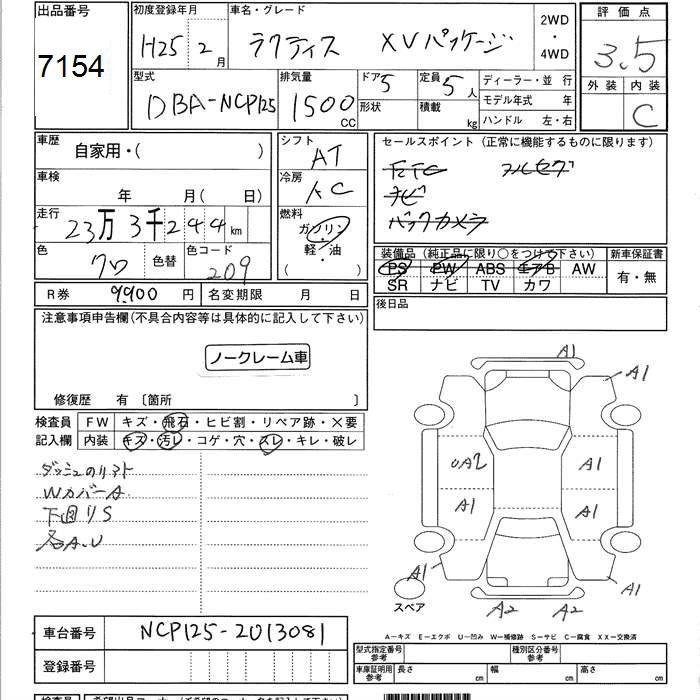 出品番号
7154
初度登録年月
H25 2月
車名・グレード
ラクティス XVパッケージ
2WD
・
4WD
評価点
3.5
外装 内装
C
型式
DBA-NCP125
排気量
1500 CC
ドア 5
形状
定員 5人
積載 kg
ディーラー・並 行
モデル年式 年
ハンドル 左・右
車歴
自家用・( )
車検
年 月( 日)
走行
23万3千244km
色
クロ
色替
色コード
209
シフト
AT
冷房
AC
燃料
ガソリン
軽・油
( )
セールスポイント (正常に機能するものに限ります)
ETC フルセグ
ナビ
バックカメラ
装備品 (純正品に限り○をつけて下さい)
PS PW ABS エアB AW
SR ナビ TV カワ
新車保証書
有・無
後日品
R券 9,900 円 名変期限 月 日
注意事項申告欄(不具合内容等は具体的に記入して下さい)
ノークレーム車
修復歴 有 〔箇所 〕
検査員
記入欄
FW キズ・飛石・ヒビ割・リペア跡・×要
内装 キズ・汚レ・コゲ・穴・スレ・キレ・破レ
WカバーA
下回りS
各A.U
A1
A1
A2
A1
A1
A1
A1
A1
A2
A2
スペア
A-キズ E-エクボ U-凹み W-補修跡 S-サビ C-腐食 XX-交換済
車台番号 NCP125-2013081
登録番号
型式指定番号
参考
種別区分番号
参考
車庫証明用
参考
長さ cm 幅 cm 高さ cm